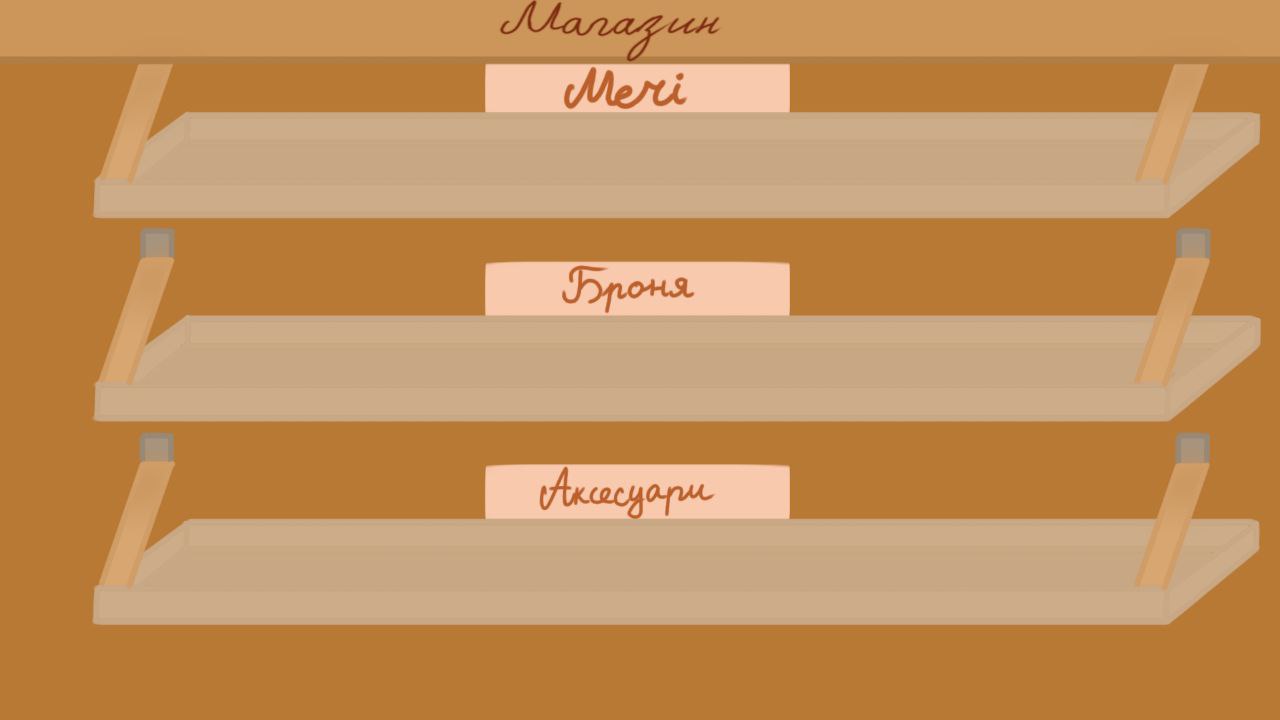 Магазин
Мечі
Броня
Аксесуари